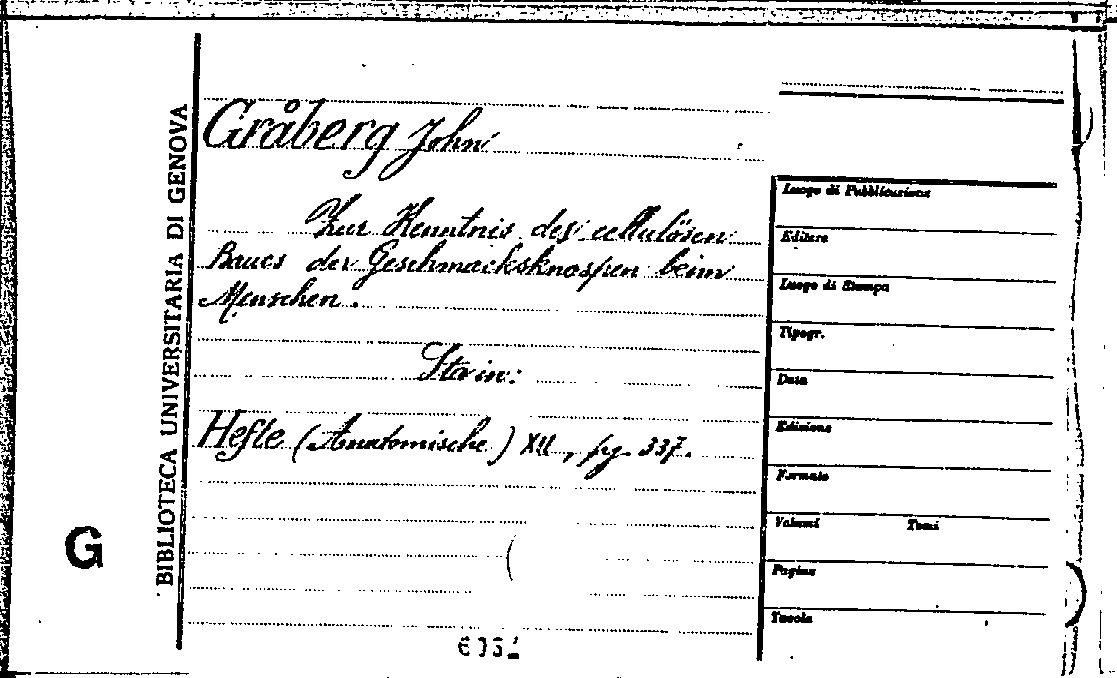 BIBLIOTECA UNIVERSITARIA DI GENOVA
G
Gråberg John
Zur Kenntnis des cellulösen
Baues der Geschmacksknospen beim
Menschen.
Sta in:
Hefte (Anatomische) XII, pg. 337.
Luogo di Pubblicazione
Editore
Luogo di Stampa
Tipogr.
Data
Edizione
Formato
Volumi Tomi
Pagine
Tavole